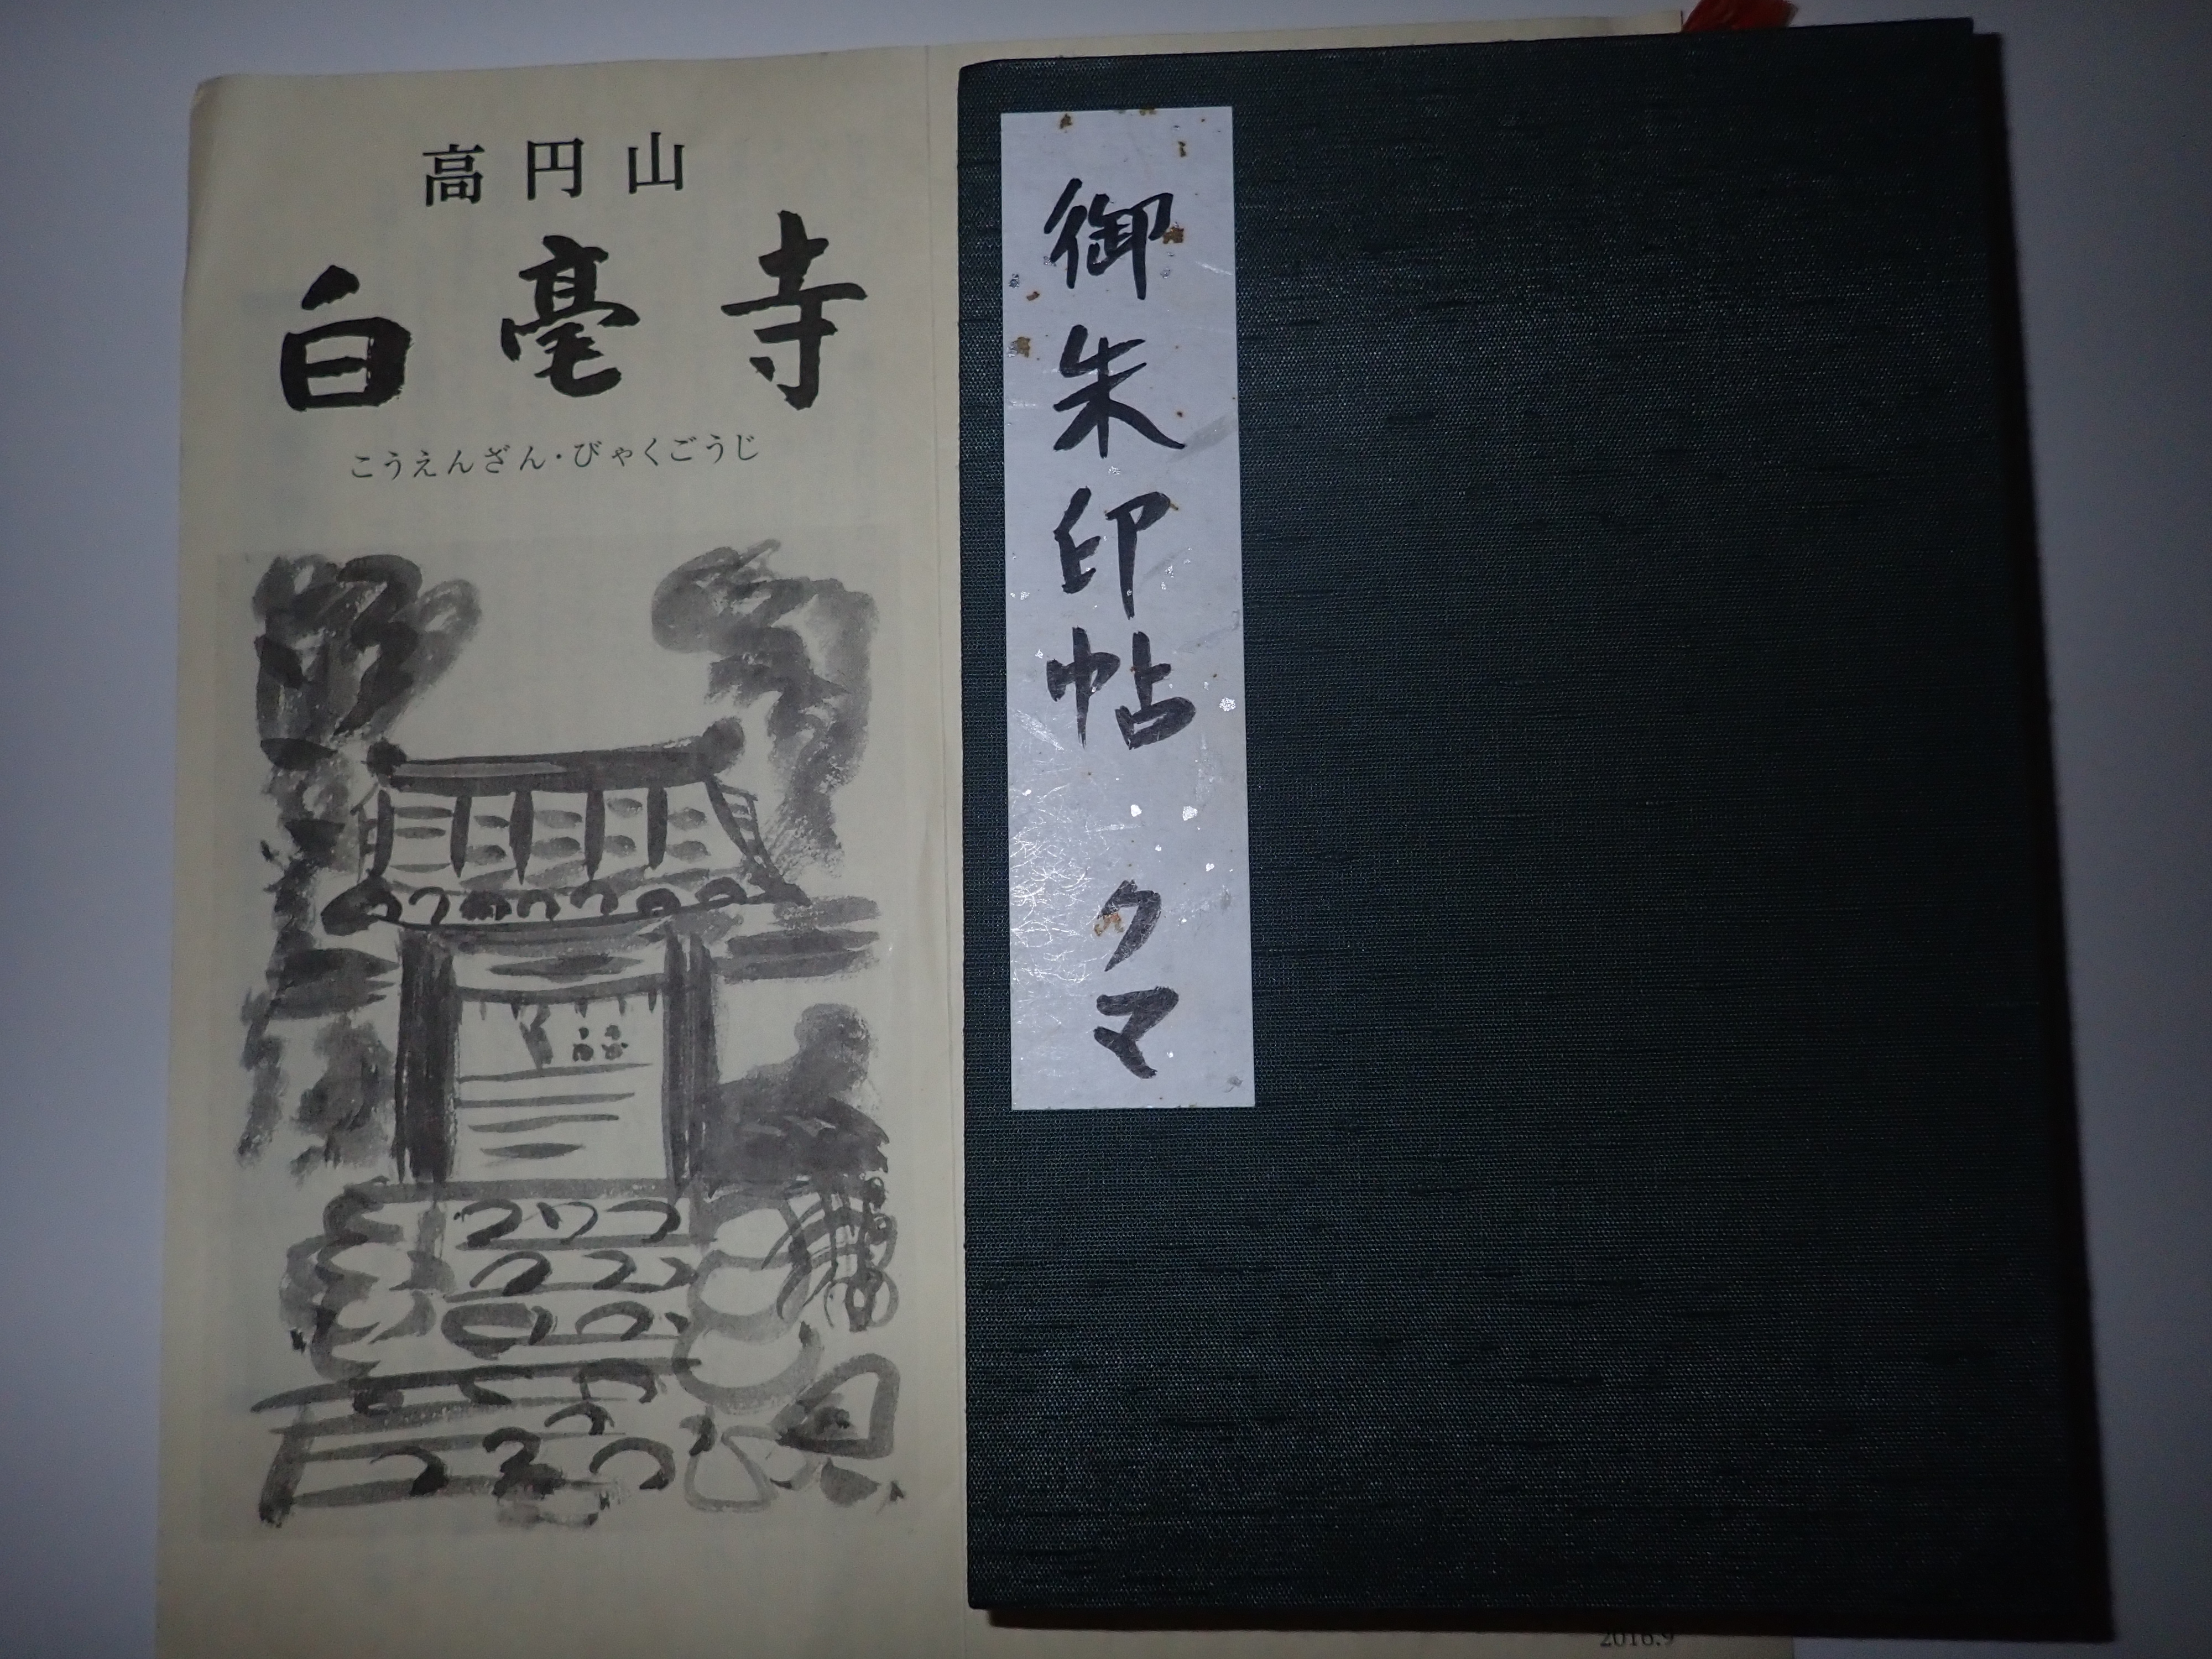 高円山
白毫寺
こうえんざん・びゃくごうじ
御朱印帖 クマ
2016.9